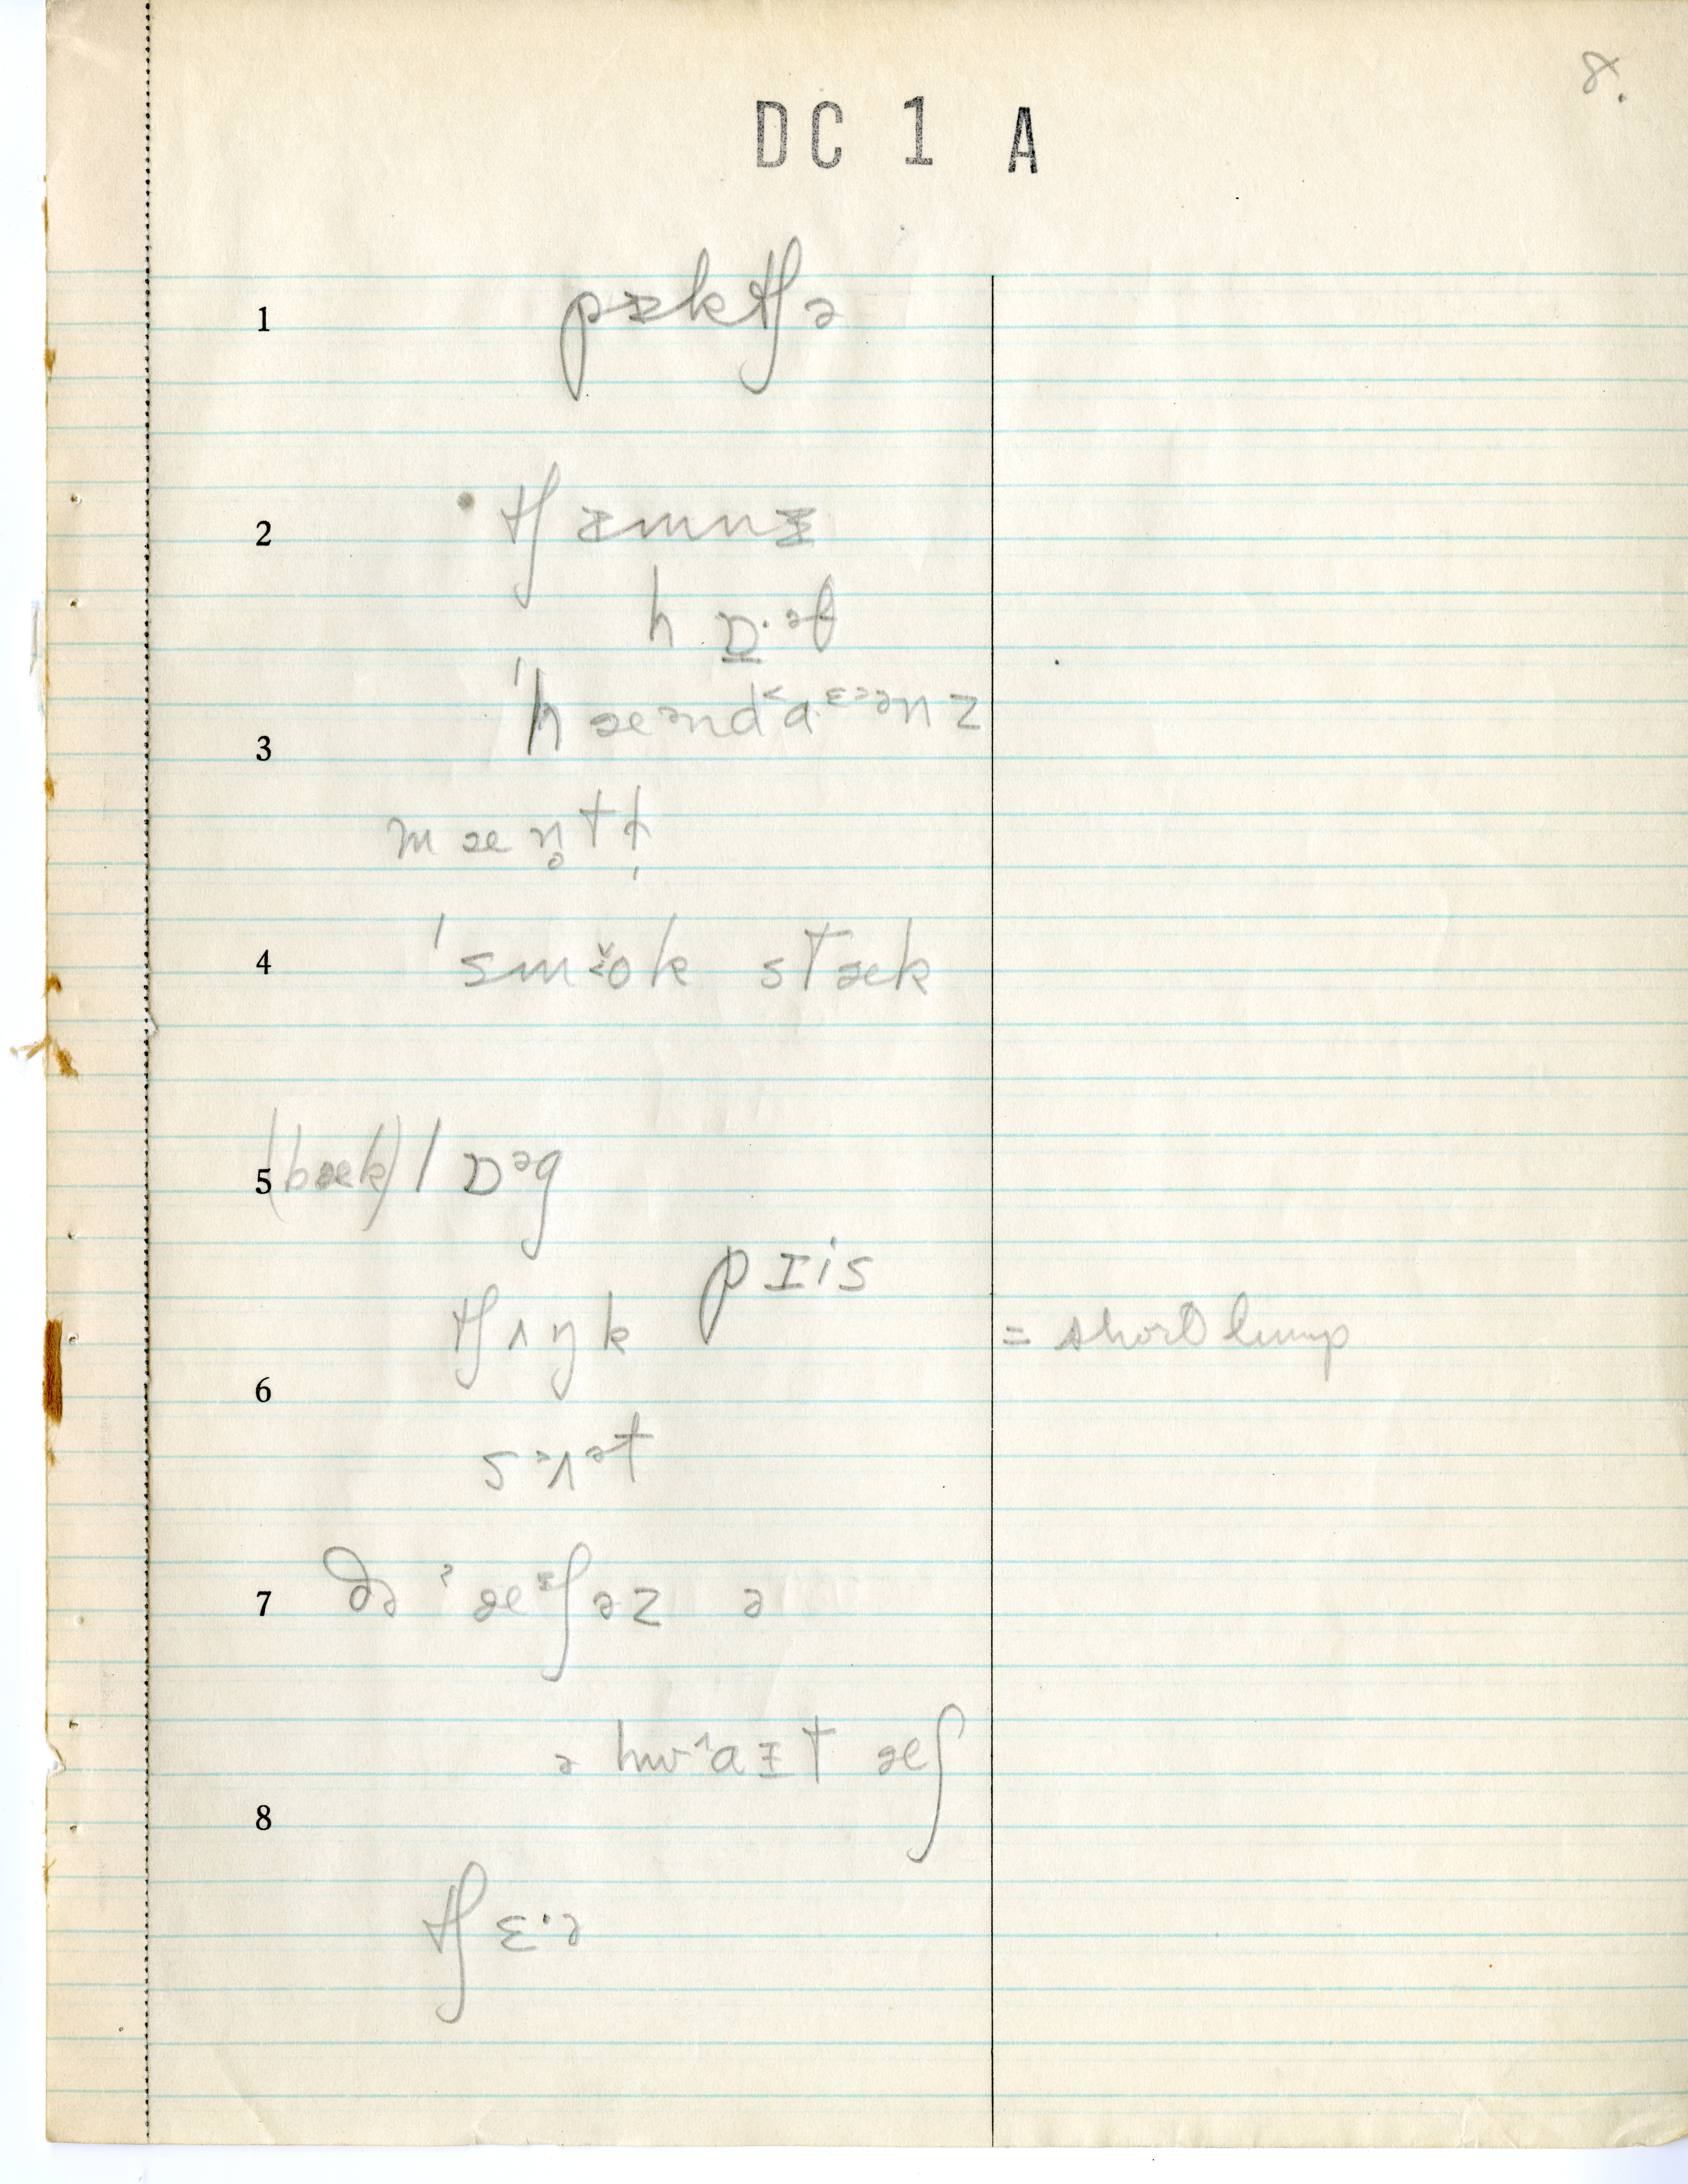 8.
DC 1 A
1 pɪktʃə
2 tʃɪmnɪ
hɒ·əf
3 ˈhæᵊnd˂a·ᵋᵊənz
mæn̥tḷ
4 ˈsmɜ̆ok stæk
5 (bæk) lɒᵊg
pɪis
tʃʌŋk = short lump
6
sᵊʌᵊt
7 ðə ˈæᶤʃəz ə
ə hwᶺaɪt æʃ
8
tʃɛ·ə